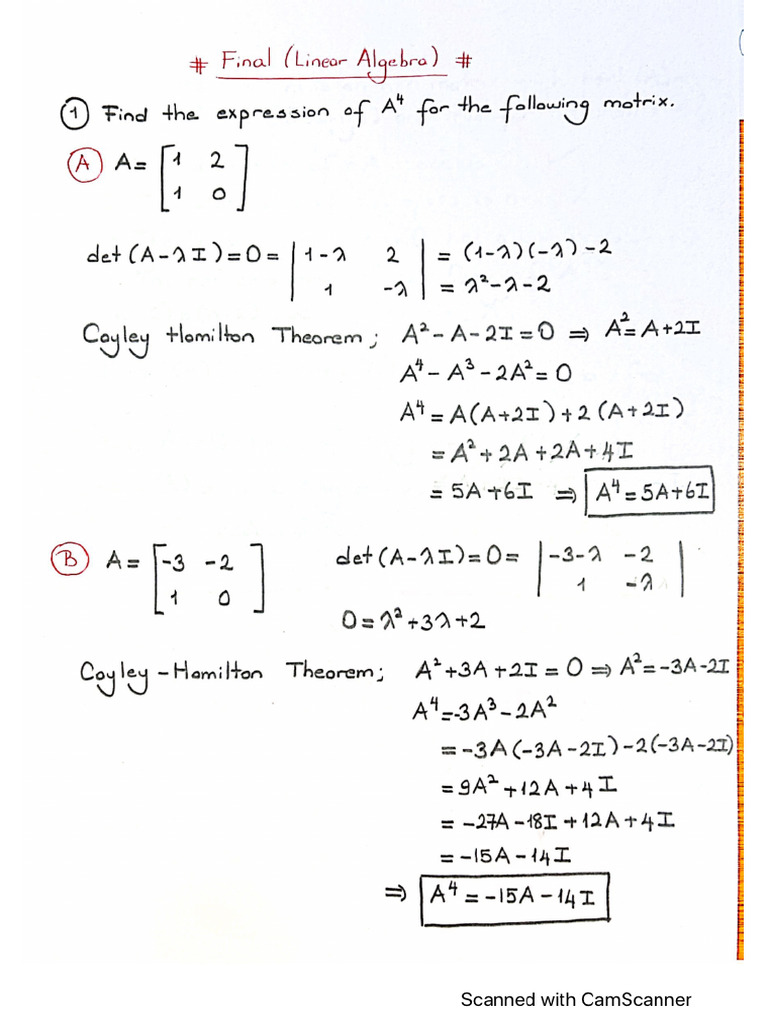 # Final (Linear Algebra) #
① Find the expression of A⁴ for the following matrix.
Ⓐ A = [1 2; 1 0]
det(A-λI)=0= |1-λ 2; 1 -λ| = (1-λ)(-λ)-2
= λ²-λ-2
Cayley Hamilton Theorem; A²-A-2I=0 ⇒ A²=A+2I
A⁴-A³-2A²=0
A⁴=A(A+2I)+2(A+2I)
=A²+2A+2A+4I
=5A+6I ⇒ A⁴=5A+6I
Ⓑ A= [-3 -2; 1 0] det(A-λI)=0= |-3-λ -2; 1 -λ|
0=λ²+3λ+2
Cayley-Hamilton Theorem; A²+3A+2I=0 ⇒ A²=-3A-2I
A⁴=-3A³-2A²
=-3A(-3A-2I)-2(-3A-2I)
=9A²+12A+4I
=-27A-18I+12A+4I
=-15A-14I
⇒ A⁴=-15A-14I
Scanned with CamScanner